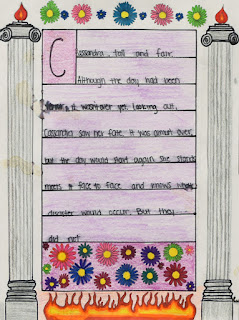 Cassandra, tall and fair.
Although the day had been
it wasn't over yet. Looking out,
Cassandra saw her fate. It was over,
but the day would start again. She stands
meets it face to face and knows
disaster would occur. But they
did not